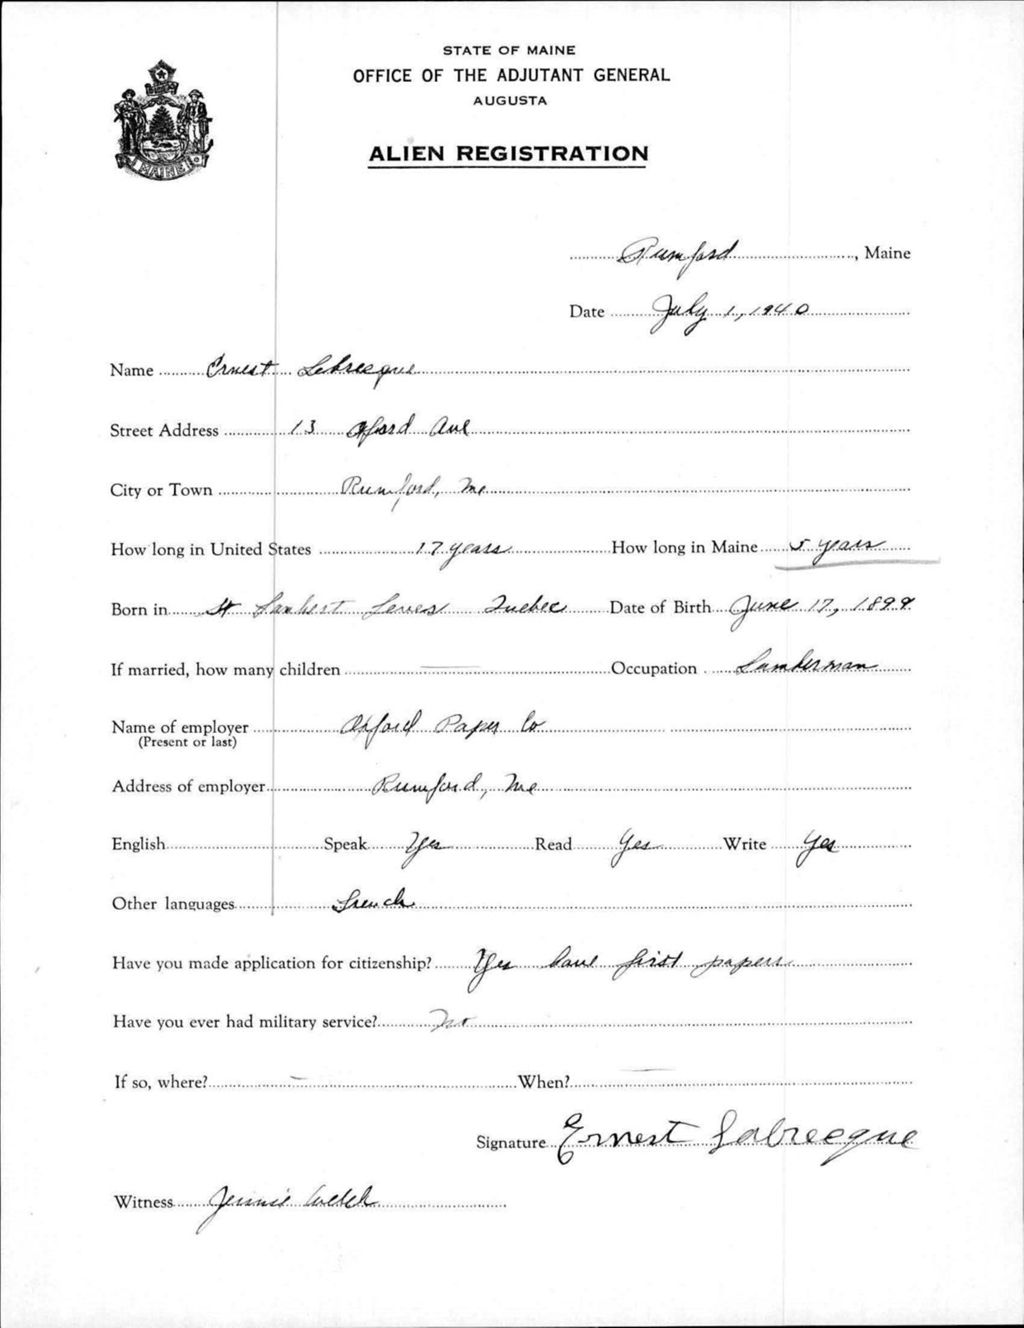 STATE OF MAINE
OFFICE OF THE ADJUTANT GENERAL
AUGUSTA
ALIEN REGISTRATION
MAINE
Rumford, Maine
Date July 1, 1940
Name Ernest Lebrecque
Street Address 13 Oxford Ave
City or Town Rumford, Me
How long in United States 17 years How long in Maine 5 years
Born in St Lambert Leves Quebec Date of Birth June 17, 1899
If married, how many children — Occupation Lumberman
Name of employer Oxford Paper Co
(Present or last)
Address of employer Rumford, Me
English Speak Yes Read Yes Write Yes
Other languages French
Have you made application for citizenship? Yes have first papers
Have you ever had military service? No
If so, where? — When? —
Signature Ernest Labrecque
Witness Jennie Welch